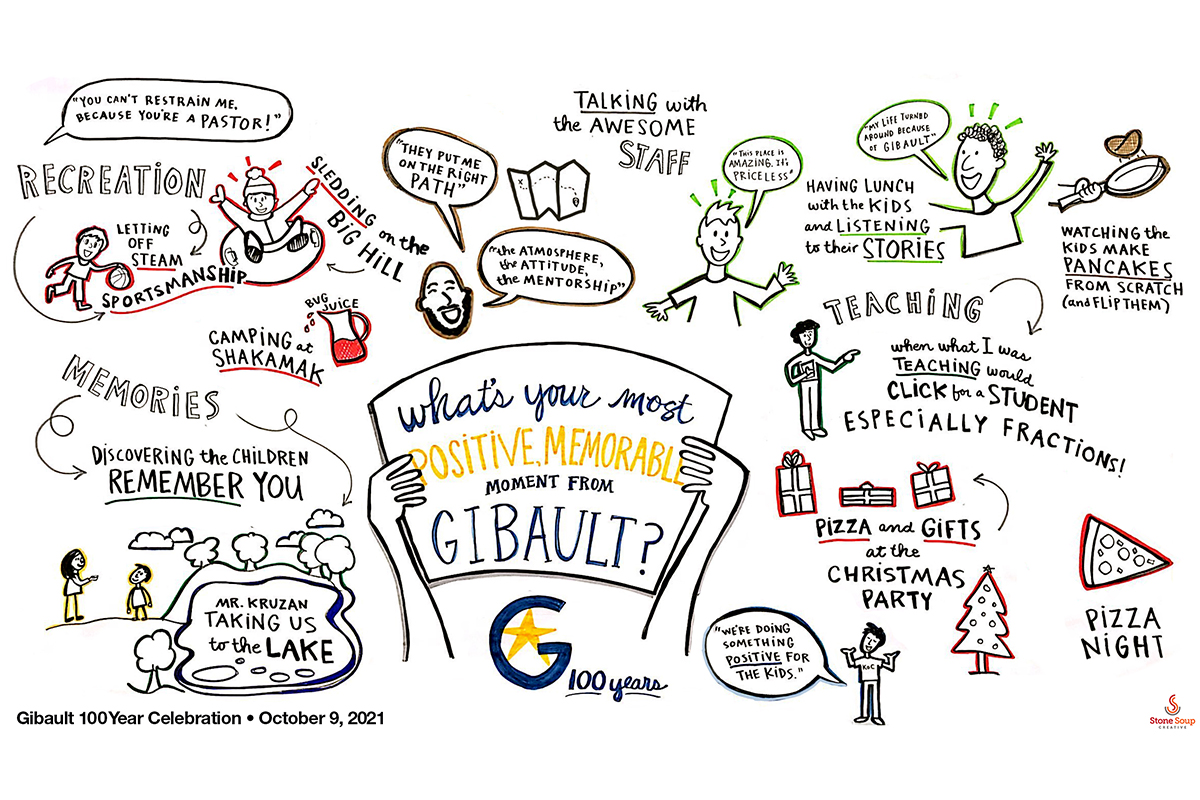 "YOU CAN'T RESTRAIN ME,
BECAUSE YOU'RE A PASTOR!"
RECREATION
LETTING
OFF
STEAM
SPORTSMANSHIP
SLEDDING on the
BIG HILL
BUG JUICE
CAMPING at
SHAKAMAK
"THEY PUT ME
ON THE RIGHT
PATH"
"the ATMOSPHERE,
the ATTITUDE,
the MENTORSHIP"
TALKING with
the AWESOME
STAFF
"THIS PLACE IS
AMAZING. IT'S
PRICELESS"
"MY LIFE TURNED
AROUND BECAUSE
OF GIBAULT"
HAVING LUNCH
with the KIDS
and LISTENING
to their STORIES
WATCHING the
KIDS MAKE
PANCAKES
FROM SCRATCH
(and FLIP THEM)
TEACHING
when what I was
TEACHING would
CLICK for a STUDENT
ESPECIALLY FRACTIONS!
MEMORIES
DISCOVERING the CHILDREN
REMEMBER YOU
MR. KRUZAN
TAKING US
to the LAKE
what's your most
POSITIVE, MEMORABLE
MOMENT FROM
GIBAULT?
G
100 years
PIZZA and GIFTS
at the
CHRISTMAS
PARTY
PIZZA
NIGHT
"WE'RE DOING
SOMETHING
POSITIVE FOR
THE KIDS."
KoC
Gibault 100 Year Celebration • October 9, 2021
Stone Soup
CREATIVE